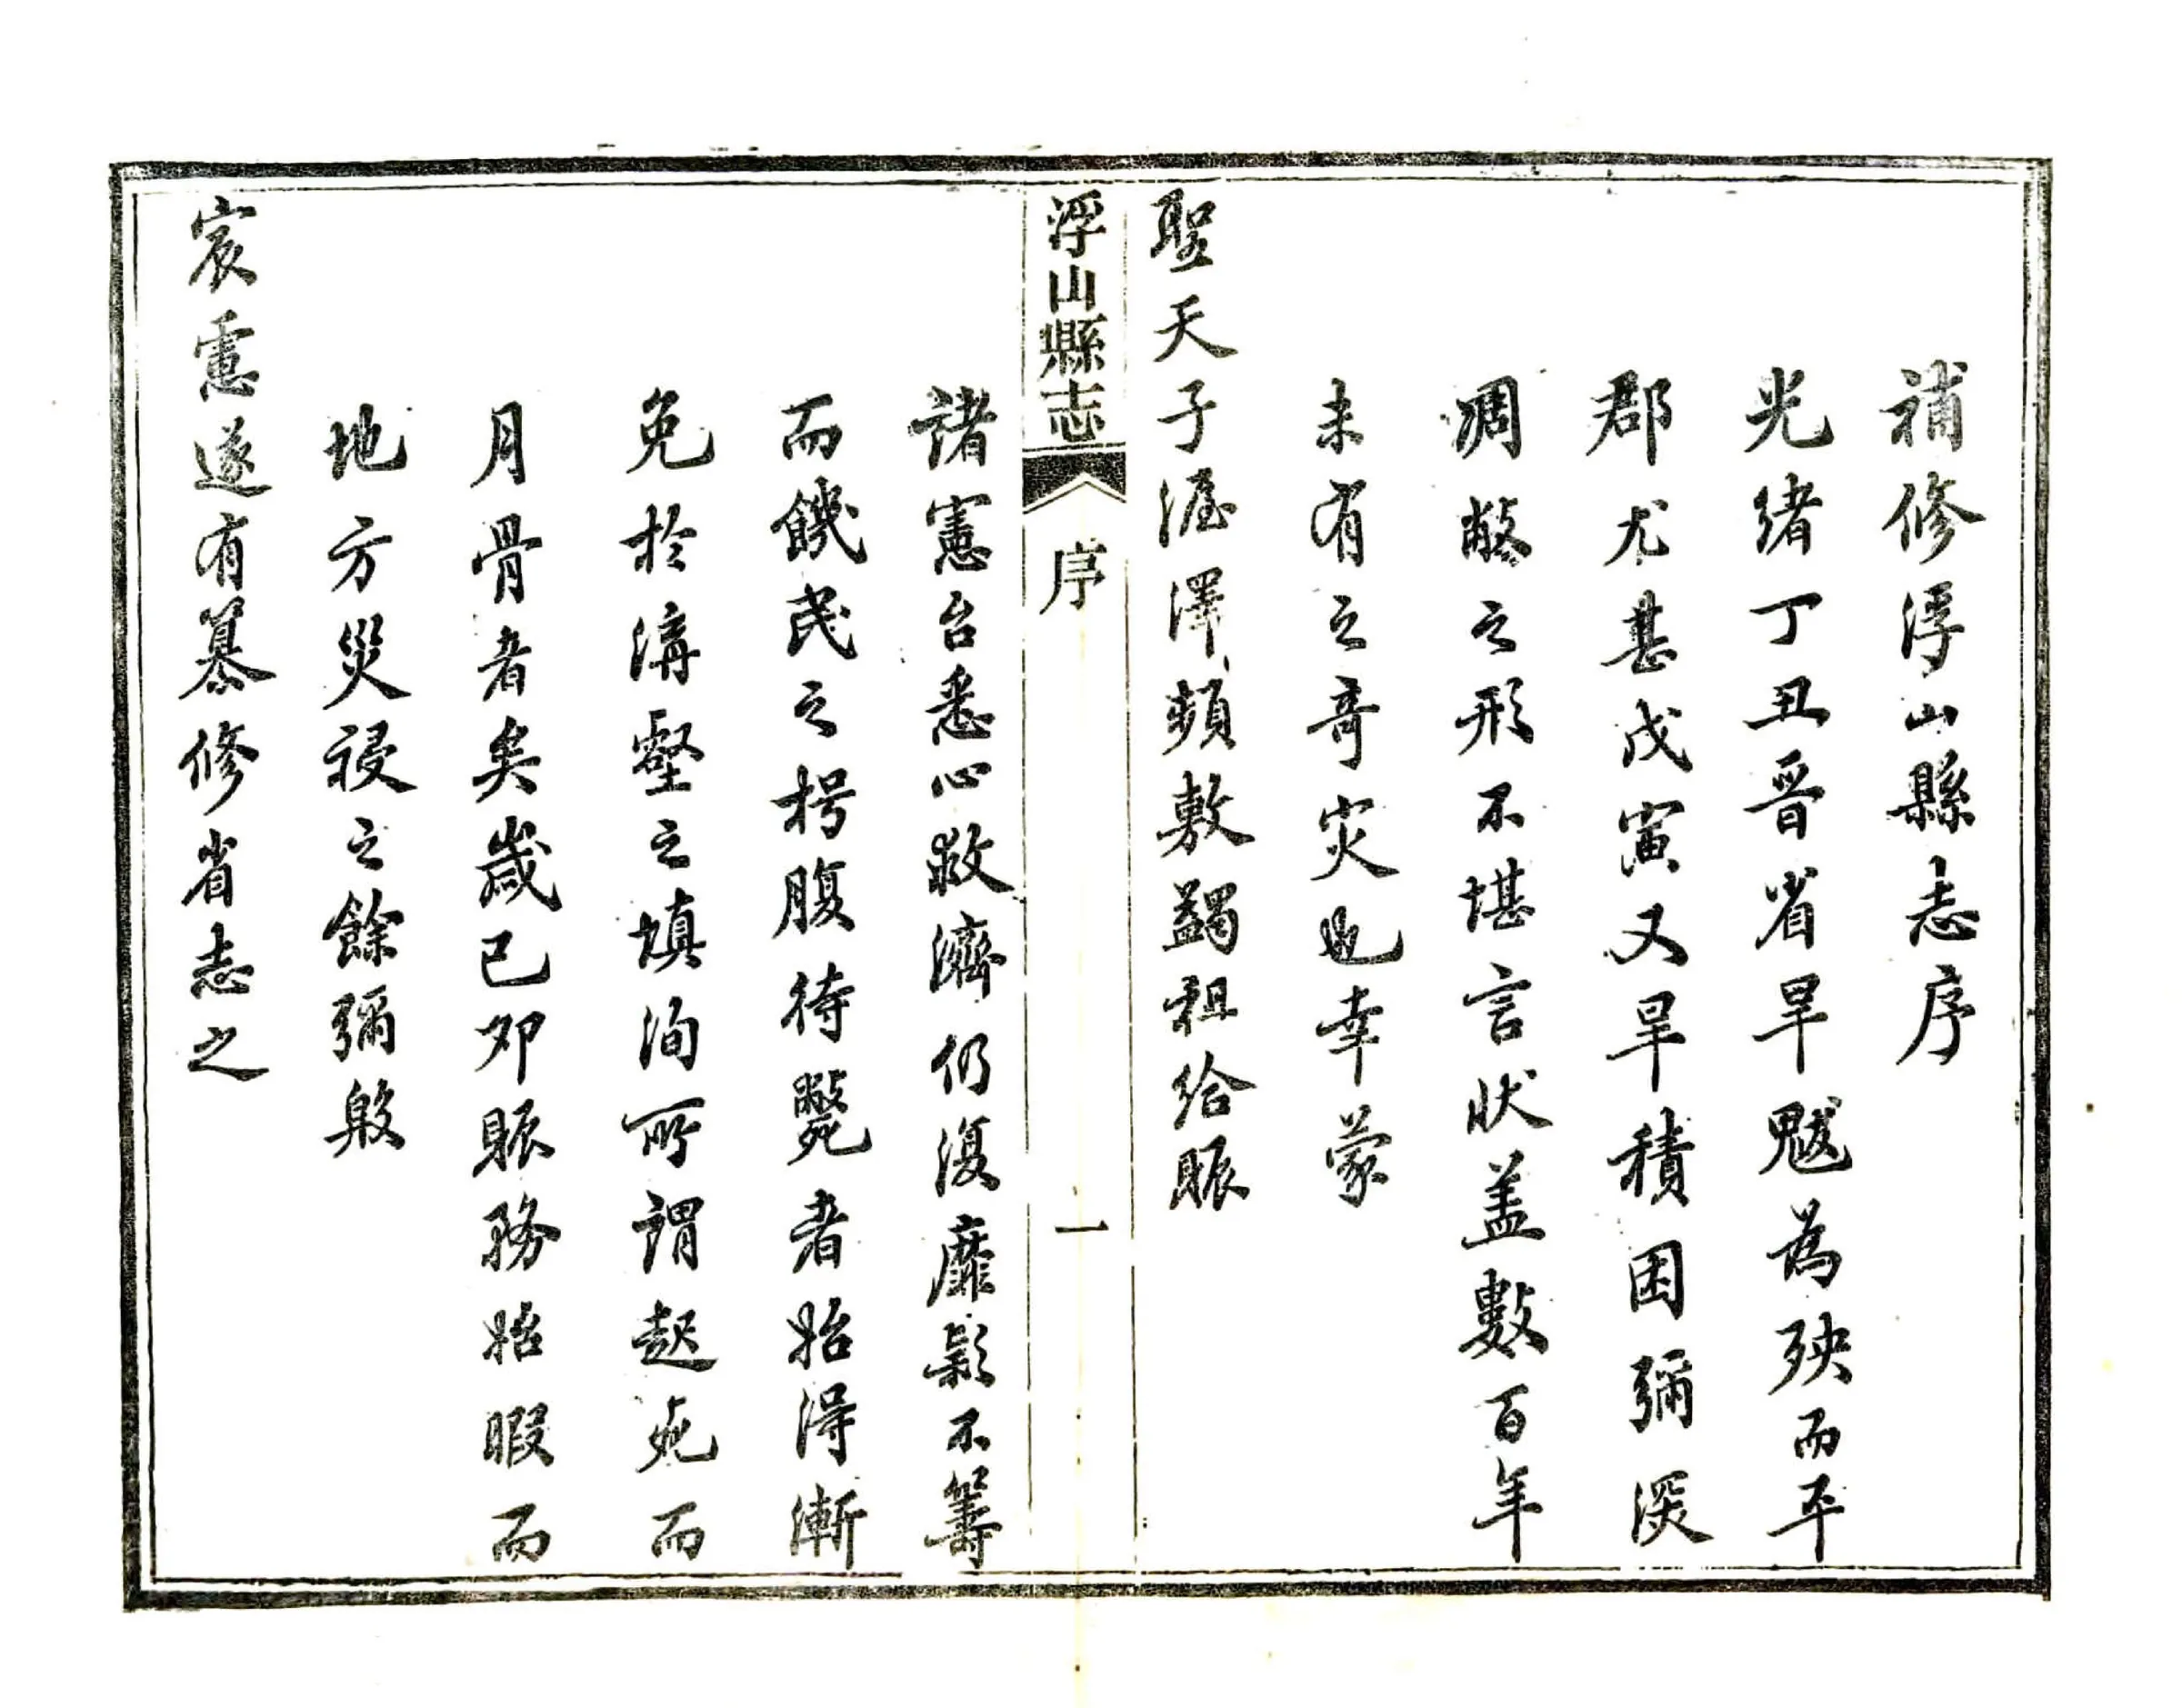 補修浮山縣志序
光緒丁丑晉省旱魃為殃而平
郡尤甚戊寅又旱積困彌深
凋敝之形不堪言狀蓋數百年
未有之奇灾也幸蒙
聖天子渥澤頻敷蠲租給賑
浮山縣志 序 一
諸憲台悉心救濟仍復靡款不籌
而饑民之枵腹待斃者始得漸
免於溝壑之填洵所謂起死而
月骨者矣歲己卯賑務始暇而
地方災祲之餘彌厪
宸慮遂有纂修省志之